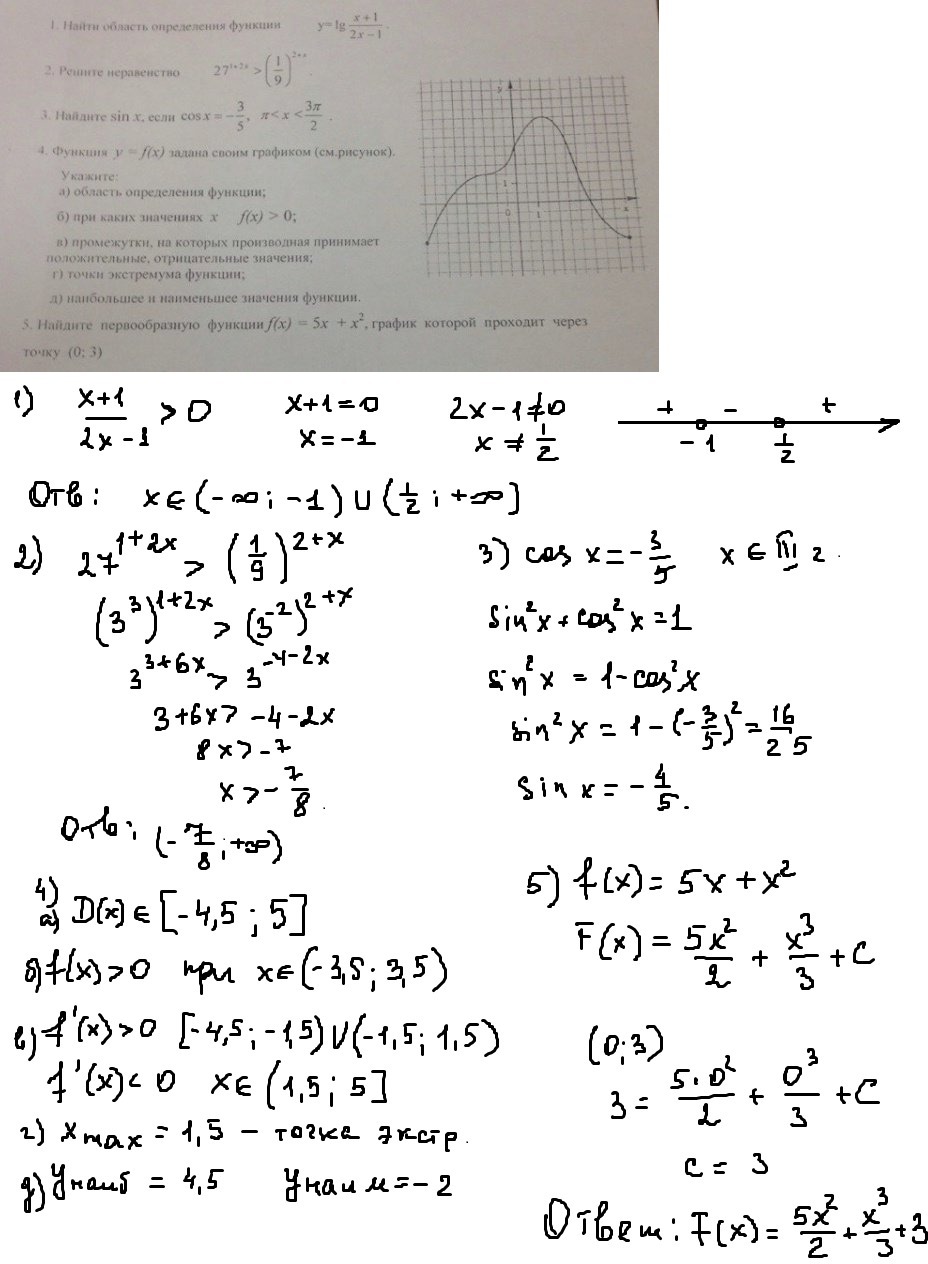 1. Найти область определения функции y=lg (x+1)/(2x−1).
2. Решите неравенство 27^(1+2x) > (1/9)^(2+x).
3. Найдите sin x, если cos x = −3/5, π< x < 3π/2 .
4. Функция y = f(x) задана своим графиком (см.рисунок).
Укажите:
а) область определения функции;
б) при каких значениях x f(x) > 0;
в) промежутки, на которых производная принимает
положительные, отрицательные значения;
г) точки экстремума функции;
д) наибольшее и наименьшее значения функции.
5. Найдите первообразную функции f(x) = 5x + x², график которой проходит через
точку (0; 3)
y
1
0
1
x
1) (x+1)/(2x−1) > 0 x+1=0 2x−1≠0 + − +
x=−1 x ≠ 1/2 −1 1/2
Отв: x∈(−∞; −1) ∪ (1/2; +∞]
2) 27^(1+2x) > (1/9)^(2+x)
(3³)^(1+2x) > (3^(−2))^(2+x)
3^(3+6x) > 3^(−4−2x)
3+6x > −4−2x
8x > −7
x > −7/8.
Отв: (−7/8; +∞)
3) cos x = −3/5 x ∈ III г.
sin²x + cos²x = 1
sin²x = 1−cos²x
sin²x = 1−(−3/5)² = 16/25
sin x = −4/5.
4)
а) D(x) ∈ [−4,5 ; 5]
б) f(x) > 0 при x∈(−3,5; 3,5)
в) f'(x) > 0 [−4,5; −1,5) ∪ (−1,5; 1,5)
f'(x) < 0 x∈ (1,5; 5]
г) x max = 1,5 − точка экстр.
д) У наиб = 4,5 У наим = −2
5) f(x) = 5x + x²
F(x) = 5x²/2 + x³/3 + C
(0; 3)
3 = 5·0²/2 + 0³/3 + C
c = 3
Ответ: F(x) = 5x²/2 + x³/3 + 3